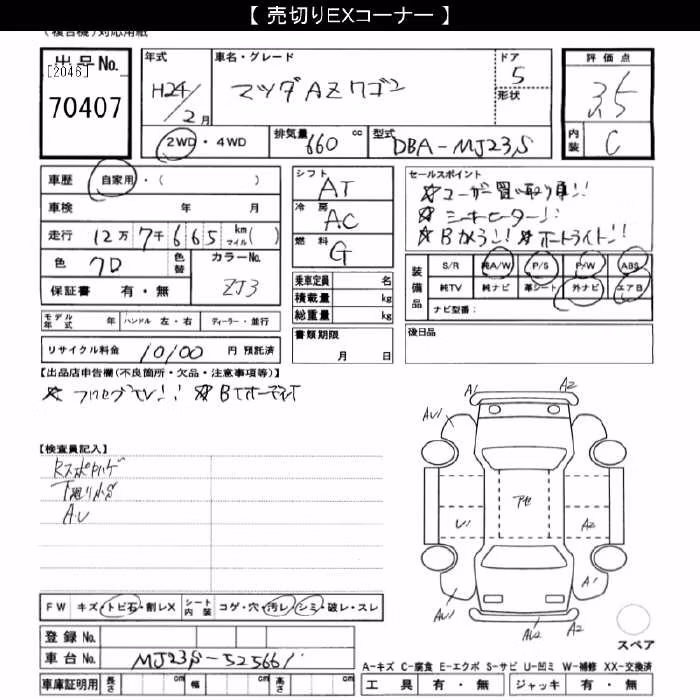 【 売切りEXコーナー 】
(複合機)対応用紙
出品No.
[2046]
70407
年式
H24/2月
車名・グレード
マツダAZワゴン
ドア
5
形状
評価点
3.5
内装
C
2WD・4WD
排気量 660 cc
型式 DBA-MJ23S
車歴 自家用・( )
車検 年 月
走行 12万7千665 km マイル( )
色 クロ 色替
カラーNo. ZJ3
保証書 有・無
シフト AT
冷房 AC
燃料 G
乗車定員 名
積載量 kg
総重量 kg
書類期限
月 日
セールスポイント
☆ユーザー買い取り車!!
☆シートヒーター!!
☆Bカメラ!! ☆オートライト!!
装備品
S/R 純A/W P/S P/W ABS
純TV 純ナビ 革シート 外ナビ エアB
ナビ型番:
後日品
モデル年式 年 ハンドル 左・右 ディーラー・並行
リサイクル料金 10100 円 預託済
【出品店申告欄(不良箇所・欠品・注意事項等)】
☆フルセグTV!! ☆BTオーディオ
【検査員記入】
下廻り小S
AU
A1
A2
AU1
アセ
U1
A2
AU1
A1
AU2
A2
スペア
FW キズ・トビ石・割レX シート内装 コゲ・穴・汚レ・シミ・破レ・スレ
登録No.
車台No. MJ23S-525661
車庫証明用 長さ cm 幅 cm 高さ cm
A-キズ C-腐食 E-エクボ S-サビ U-凹ミ W-補修 XX-交換済
工具 有・無 ジャッキ 有・無